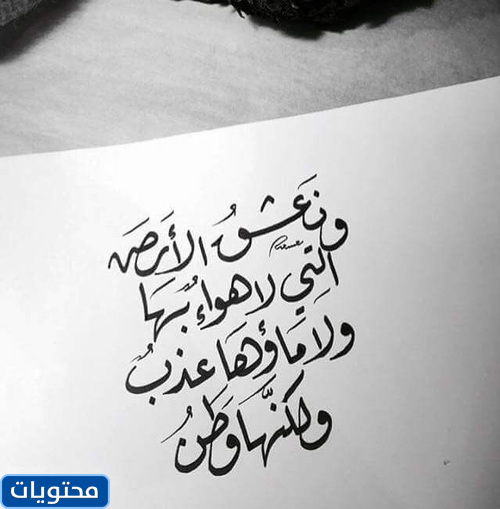 ونَعَشقُ الأَرضَ
التِي لا هواءٌ بهَا
ولا مَاؤهَا عذبٌ
ولكنّهَا وَطَنُ
محتويات